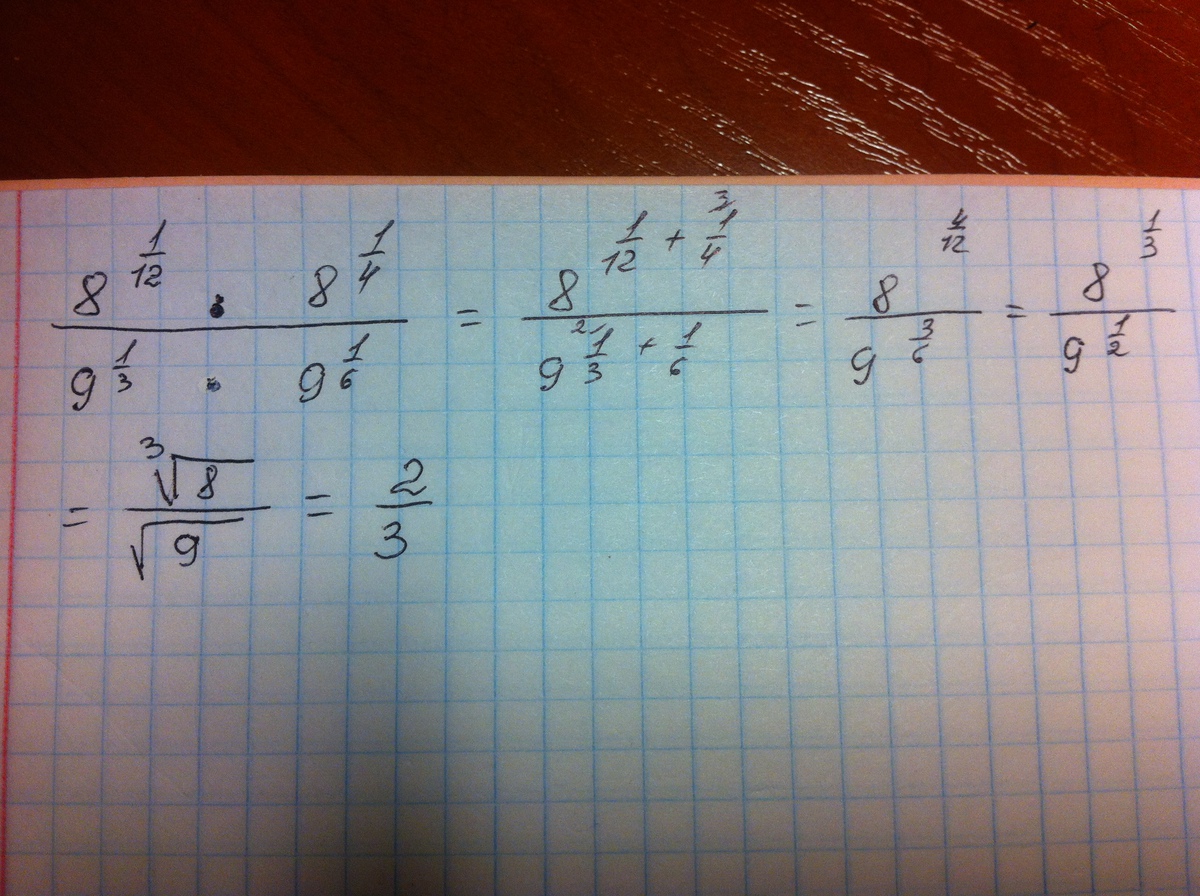 \frac{8^{\frac{1}{12}} \cdot 8^{\frac{1}{4}}}{9^{\frac{1}{3}} \cdot 9^{\frac{1}{6}}} = \frac{8^{\frac{1}{12} + \overset{3}{\frac{1}{4}}}}{9^{\overset{2}{\frac{1}{3}} + \frac{1}{6}}} = \frac{8^{\frac{4}{12}}}{9^{\frac{3}{6}}} = \frac{8^{\frac{1}{3}}}{9^{\frac{1}{2}}}
= \frac{\sqrt[3]{8}}{\sqrt{9}} = \frac{2}{3}